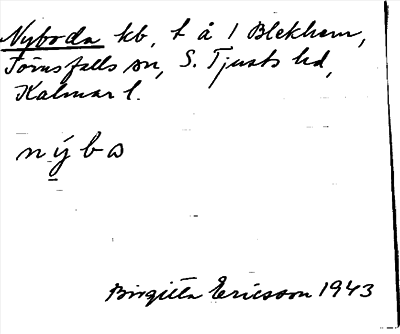 Nyboda kb, t å 1 Blekhem,
Törnsfalls sn, S. Tjusts hd,
Kalmar l.
nýbω
Birgitta Ericsson 1943